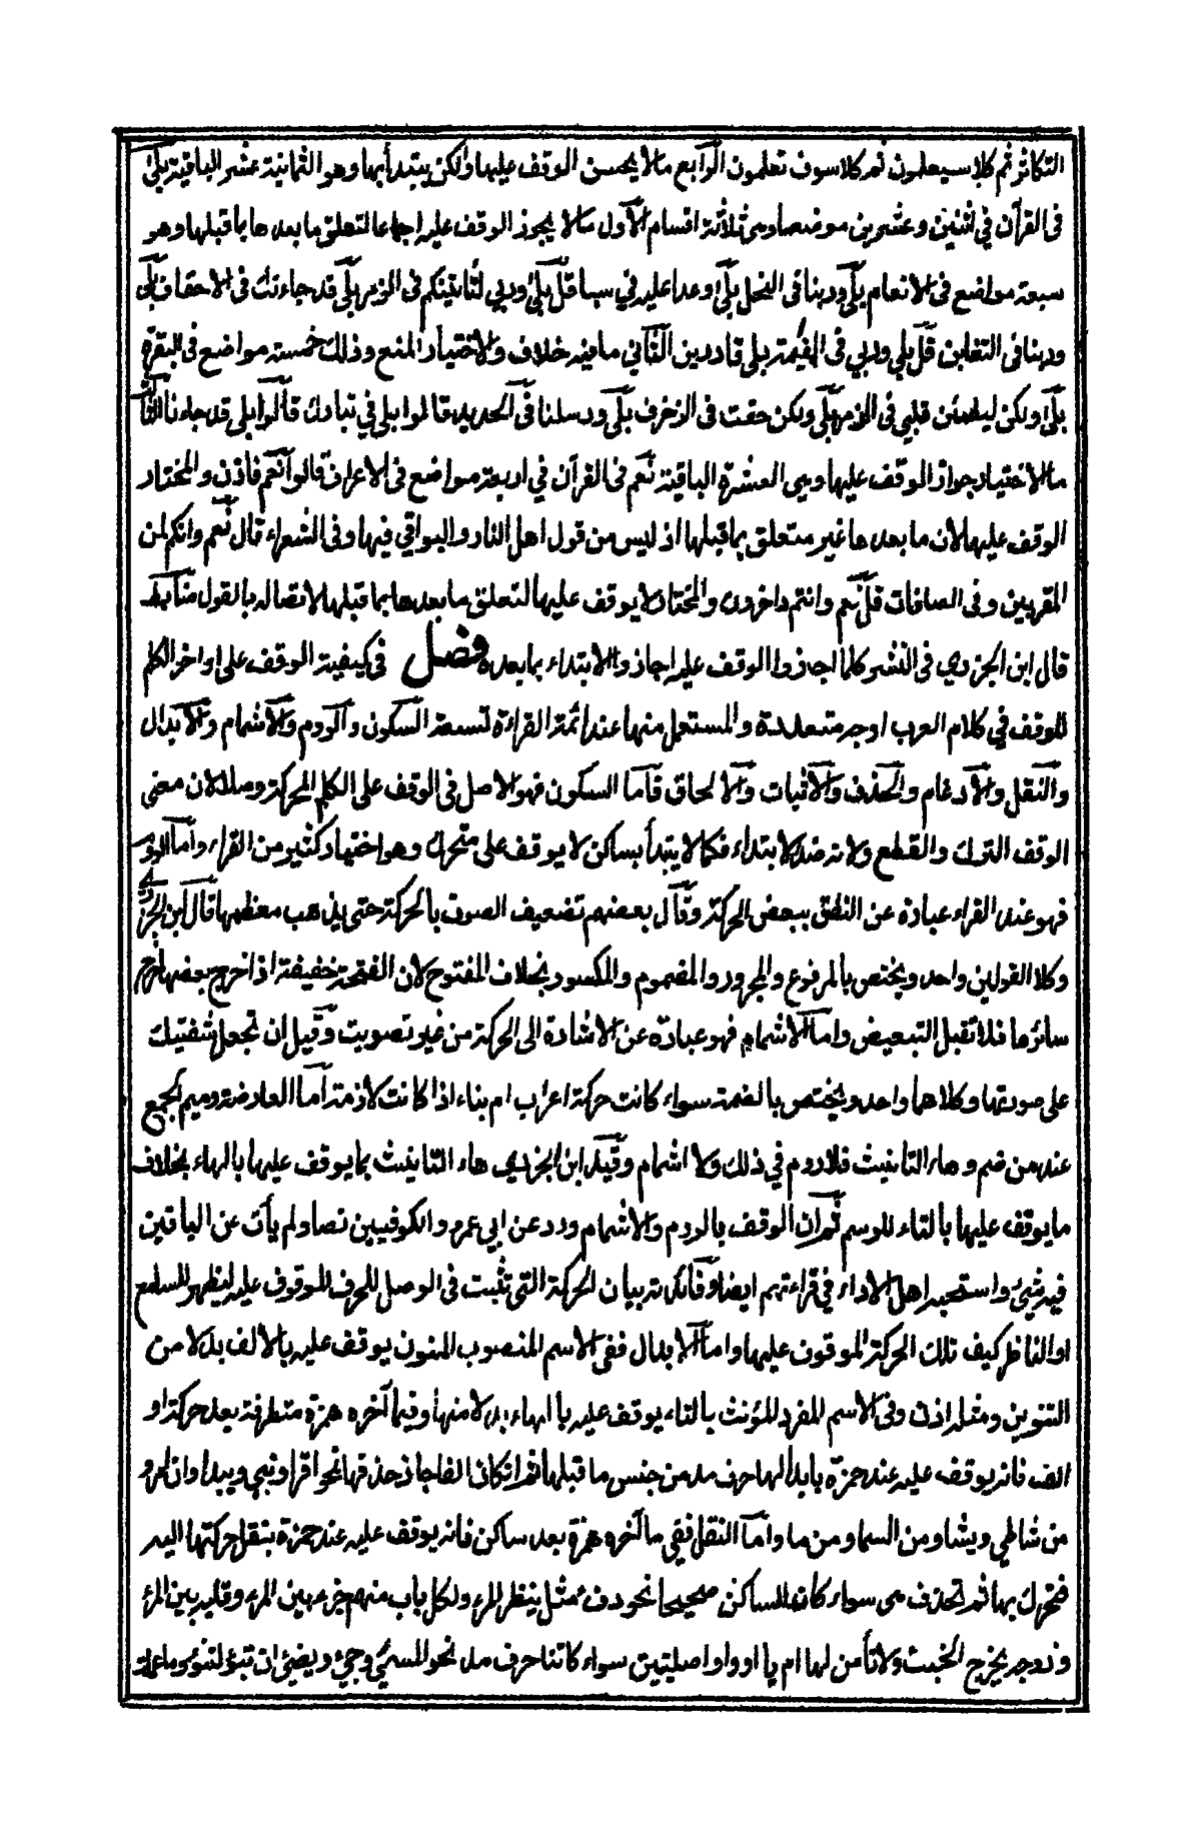 التكاثر ثم كلا سيعلمون ثم كلا سوف تعلمون الرابع مالا يحسن الوقف عليها ولكن يبتدأ بها وهو الثمانية عشر الباقية بلى
فى القرآن في اثنين وعشرين موضعا وهى ثلاثة اقسام الأول مالا يجوز الوقف عليه اجماعا لتعلق ما بعدها بما قبلها وهو
سبعة مواضع فى الانعام بلى وربنا فى النحل بلى وعدا عليه في سبا قل بلى وربي لتأتينكم فى الزمر بلى قد جاءتك فى الاحقاف بلى
وربنا فى التغابن قل بلي وربي فى القيمة بلى قادرين الثاني ما فيه خلاف والاختيار المنع وذلك خمسة مواضع فى البقرة
بلى ولكن ليطمئن قلبي فى الزمر بلى ولكن حقت فى الزخرف بلى ورسلنا فى الحديد قالوا بلى في تبارك قالوا بلى قد جاءنا الثالث
ما الاختيار جواز الوقف عليها وهى العشرة الباقية نعم فى القرآن في اربعة مواضع فى الاعراف قالوا نعم فاذن والمختار
الوقف عليها لان ما بعدها غير متعلق بما قبلها اذ ليس من قول اهل النار والبواقي فيها وفى الشعراء قال نعم وانكم لمن
المقربين وفى الصافات قل نعم وانتم داخرون والمختار لا يوقف عليها لتعلق ما بعدها بما قبلها لاتصاله بالقول ضابط
قال ابن الجزري فى النشر كلما اجازوا الوقف عليه اجازوا الابتداء بما بعده فصل في كيفية الوقف على اواخر الكلم
للوقف في كلام العرب اوجه متعددة والمستعمل منها عند ائمة القراءة تسعة السكون والروم والاشمام والابدال
والنقل والادغام والحذف والاثبات والالحاق فاما السكون فهو الاصل فى الوقف على الكلم المحركة وصلا لان معنى
الوقف الترك والقطع ولانه ضد الابتداء فكما لا يبتدأ بساكن لا يوقف على متحرك وهو اختيار كثير من القراء واما الروم
فهو عند القراء عبارة عن النطق ببعض الحركة وقال بعضهم تضعيف الصوت بالحركة حتى يذهب معظمها قال ابن الجزري
وكلا القولين واحد ويختص بالمرفوع والمجرور والمضموم والمكسور بخلاف المفتوح لان الفتحة خفيفة اذا خرج بعضها خرج
سائرها فلا تقبل التبعيض واما الاشمام فهو عبارة عن الاشارة الى الحركة من غير تصويت وقيل ان تجعل شفتيك
على صورتها وكلاهما واحد ويختص بالضمة سواء كانت حركة اعراب ام بناء اذا كانت لازمة اما العارضة وميم الجمع
عند من ضم وهاء التانيث فلا روم في ذلك ولا اشمام وقيد ابن الجزري هاء التانيث بما يوقف عليها بالهاء بخلاف
ما يوقف عليها بالتاء للرسم ثم ان الوقف بالروم والاشمام ورد عن ابي عمرو والكوفيين نصا ولم يأت عن الباقين
فيه شئ واستحبه اهل الاداء في قراءتهم ايضا وفائدته بيان الحركة التى تثبت فى الوصل للحرف الموقوف عليه ليظهر للسامع
او الناظر كيف تلك الحركة الموقوف عليها واما الابدال ففى الاسم المنصوب المنون يوقف عليه بالالف بدلا من
التنوين ومثله اذن وفى الاسم المفرد المؤنث بالتاء يوقف عليه بالهاء بدلا منها وفيما آخره همزة متطرفة بعد حركة او
الف فانه يوقف عليه عند حمزة بابدالها حرف مد من جنس ما قبلها ثم ان كان الفا جاز حذفها نحو اقرا ونبي ويبدا وان امرو
من شاطي ويشاو من السما ومن ما واما النقل ففي ما آخره همزة بعد ساكن فانه يوقف عليه عند حمزة بنقل حركتها اليه
فتحرك بها ثم تحذف هى سواء كان الساكن صحيحا نحو دفء مثل ينظر المرء ولكل باب منهم جزء بين المرء وقلبه بين المرء
وزوجه يخرج الخبث ولا ثامن لها ام يا او واوا اصليتين سواء كانتا حرف مد نحو المسئ وجئ ويضئ ان تبوء لتنوء وما عملت